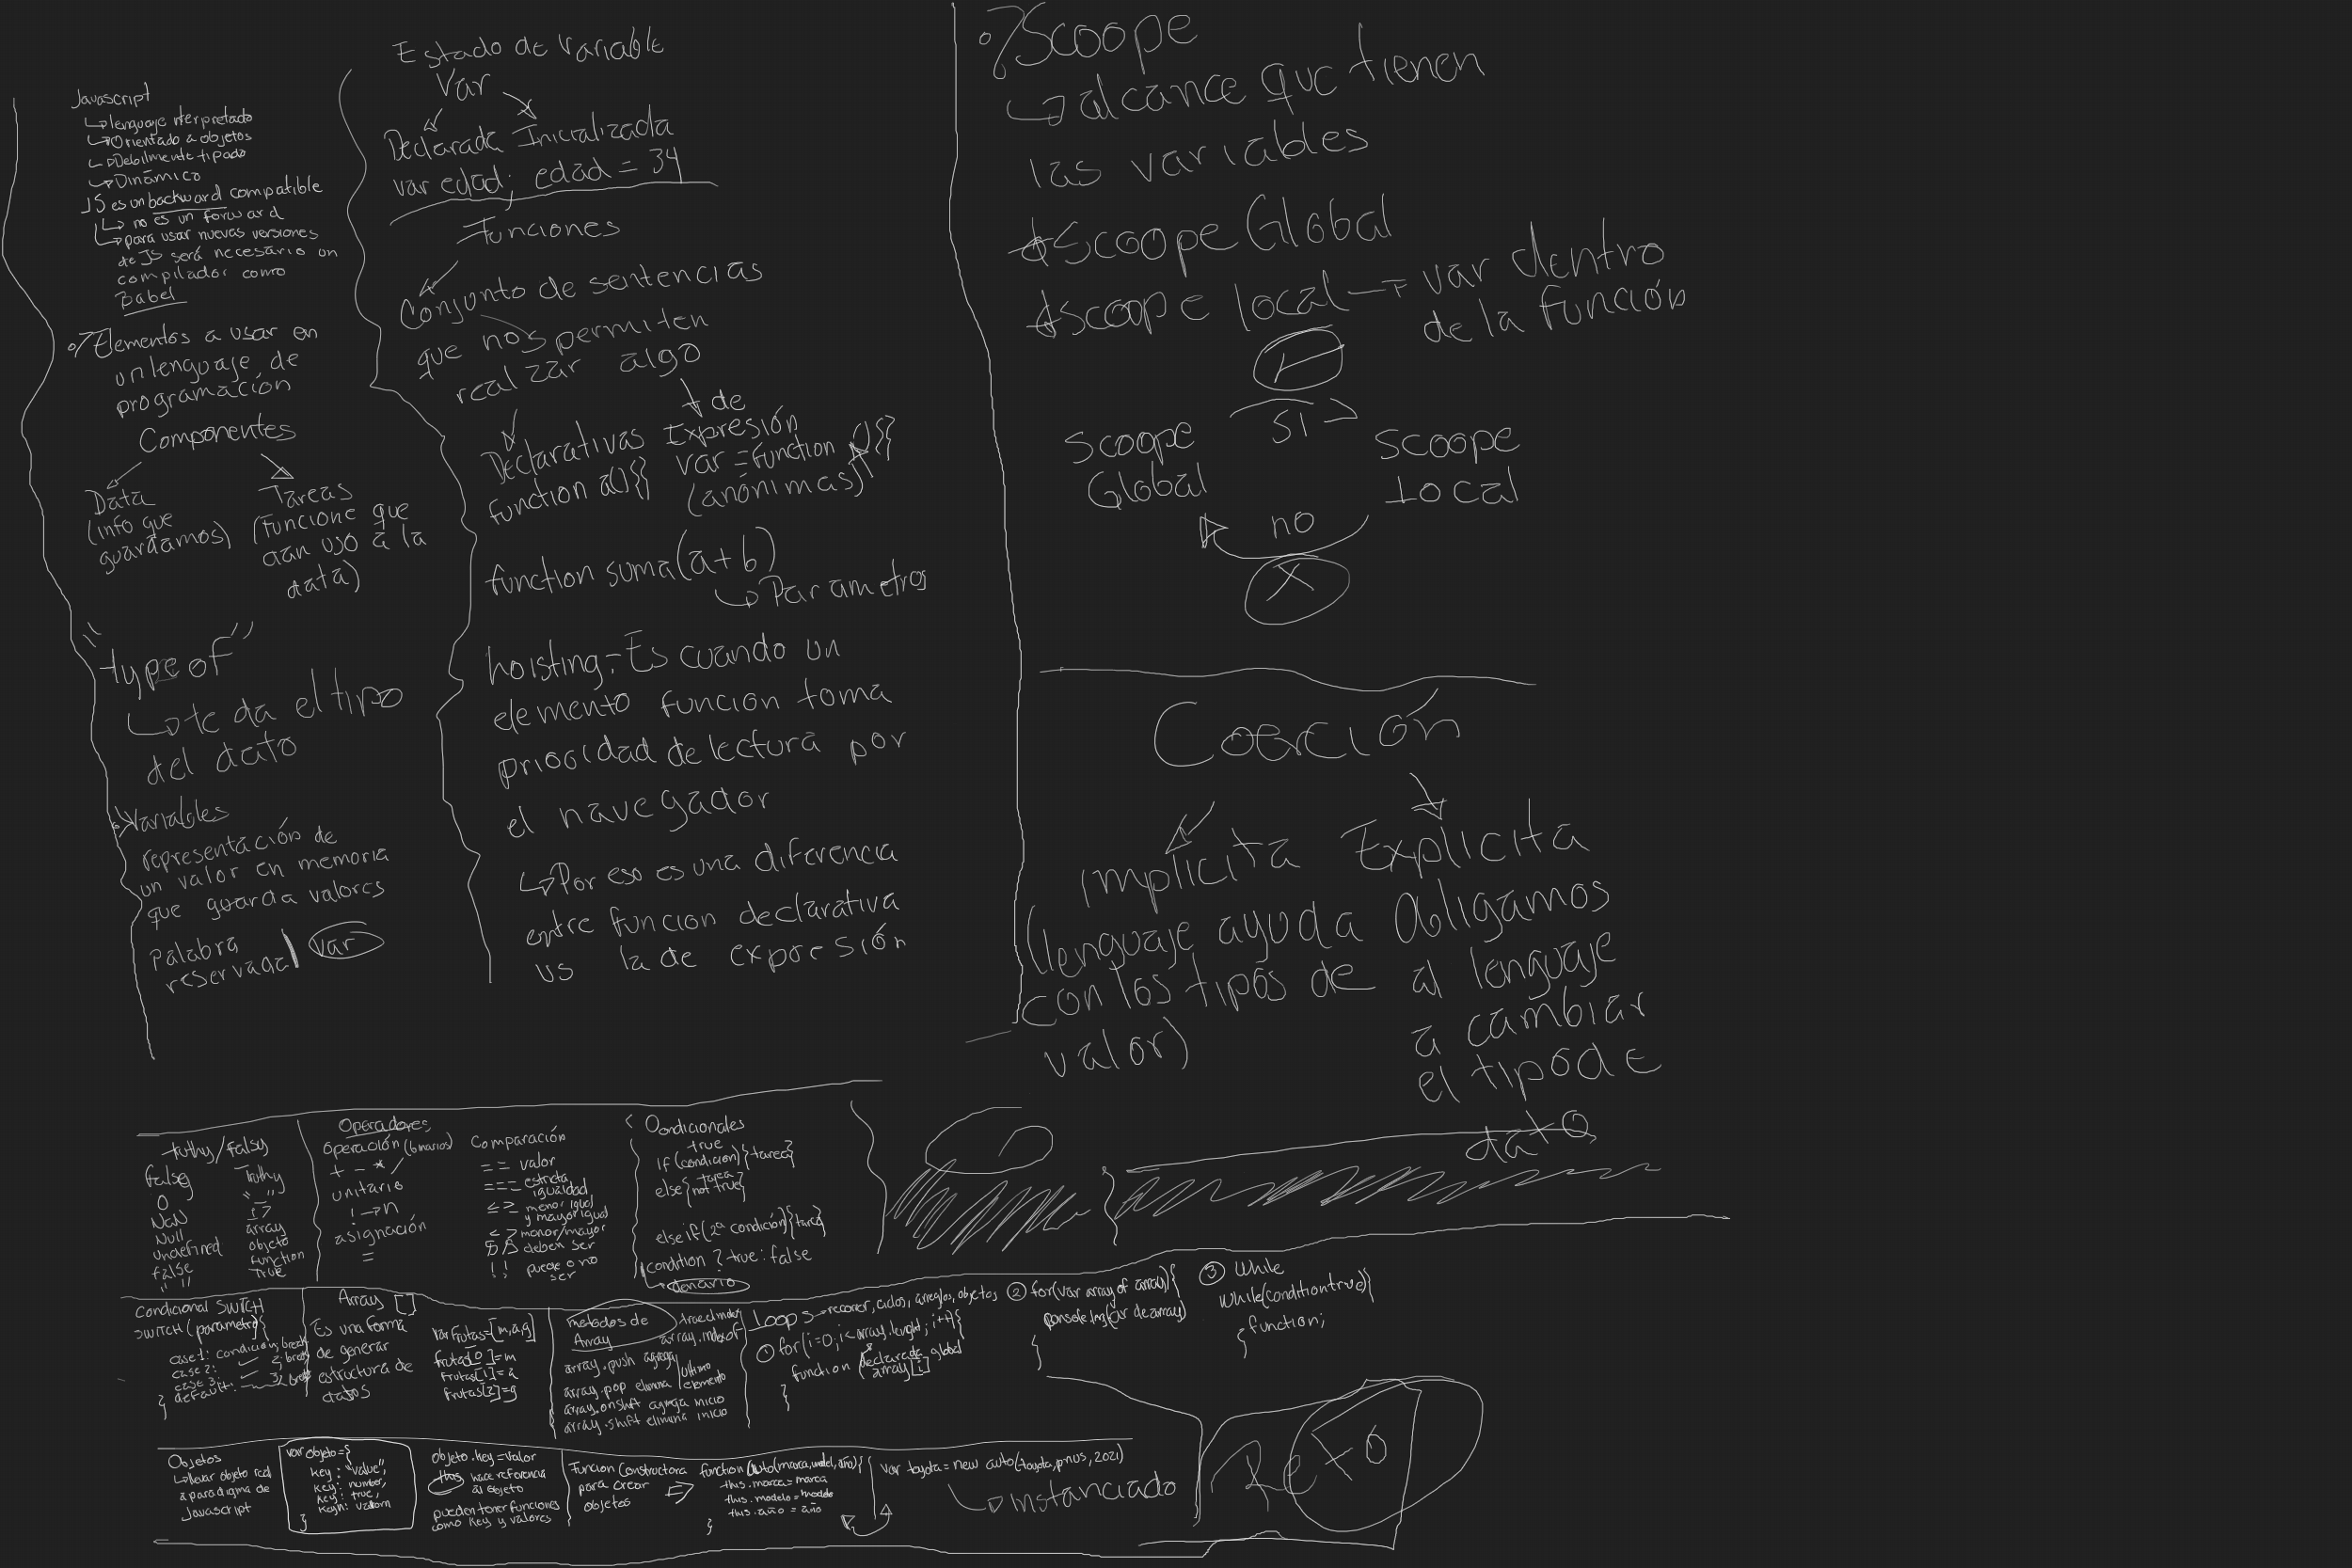 Javascript
↳lenguaje nterpretado
↳Orientado a objetos
↳Debilmente tipado
↳Dinámico
JS es un backward compatible
↳ no es un forward
↳para usar nuevas versiones
de JS será necesario un
compilador como
Babel
Elementos a usar en
un lenguaje de
programación
Componentes
Data
(info que
guardamos)
Tareas
(Funcione que
dan uso a la
data)
"typeof"
↳te da el tipo
del dato
Variables
representación de
un valor en memoria
que guarda valores
Palabra
reservada
var
Estado de Variable
Var
Declarada Inicializada
var edad; edad = 34
Funciones
Conjunto de sentencias
que nos permiten
realizar algo
Declarativas
function a(){}
de
Expresión
var = function (){}
(anónimas)
function suma(a+b)
↳Parametros
hoisting: Es cuando un
elemento funcion toma
prioridad de lectura por
el navegador
↳Por eso es una diferencia
entre funcion declarativa
vs la de exporesión
Scoope
↳alcance que tienen
las variables
Scoope Global
Scoope local → var dentro
de la función
Scoope
Global
si
Scoope
Local
no
X
Coerción
implicita
(lenguaje ayuda
con los tipos de
valor)
Explicita
Obligamos
al lenguaje
a cambiar
el tipo de
dato
truthy/falsy
falsy
0
NaN
Null
undefined
false
" "
Truthy
"_"
1?
array
objeto
function
True
Operadores
Operación (binarios)
+ - * /
unitario
! → n
asignación
=
Comparación
== valor
=== estricta
igualdad
<= >= menor igual
y mayor igual
< > menor/mayor
&& deben ser
|| puede o no
ser
Condicionales
true
if(condicion){tarea}
else{tarea
not true}
else if(2ª condición){tarea}
condition ? true : false
Condicional SWITCH
SWITCH (parametro){
case1: condicion; break
case2: ✓ 2; break
case3: ✓ 3; break
default:
}
Array []
Es una forma
de generar
estructura de
datos
Var frutas=[m,a,g]
frutas[0]=m
frutas[1]=a
frutas[2]=g
Metodos de
Array
trae el index
array.indexof
array.push agrega
array.pop elimina
Ultimo
elemento
array.onshift agrega inicio
array.shift elimina inicio
Loops → recorrer, ciclos, arreglos, objetos
① for(i=0; i<array.lenght; i++){
function declarada global
array[i]
}
② for(var array of array){
console.log(var de array)
}
③ While
While(condition true){
function;
}
Objetos
↳llevar objeto real
a paradigma de
Javascript
var objeto={
key: "value",
key: number,
key: true,
keyn: valorn
}
objeto.key=valor
this hace referencia
al objeto
pueden tener funciones
como key y valores
Funcion Constructora
para crear
objetos
function auto(marca, model, año){
this.marca=marca
this.modelo=modelo
this.año = año
}
var toyota = new auto(toyota, prius, 2021)
↳instanciado